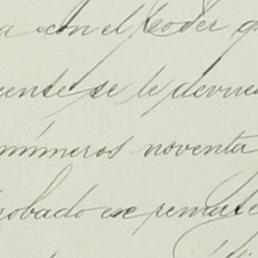 a con el Poder q
cente se le devue
números noventa
robado en remate